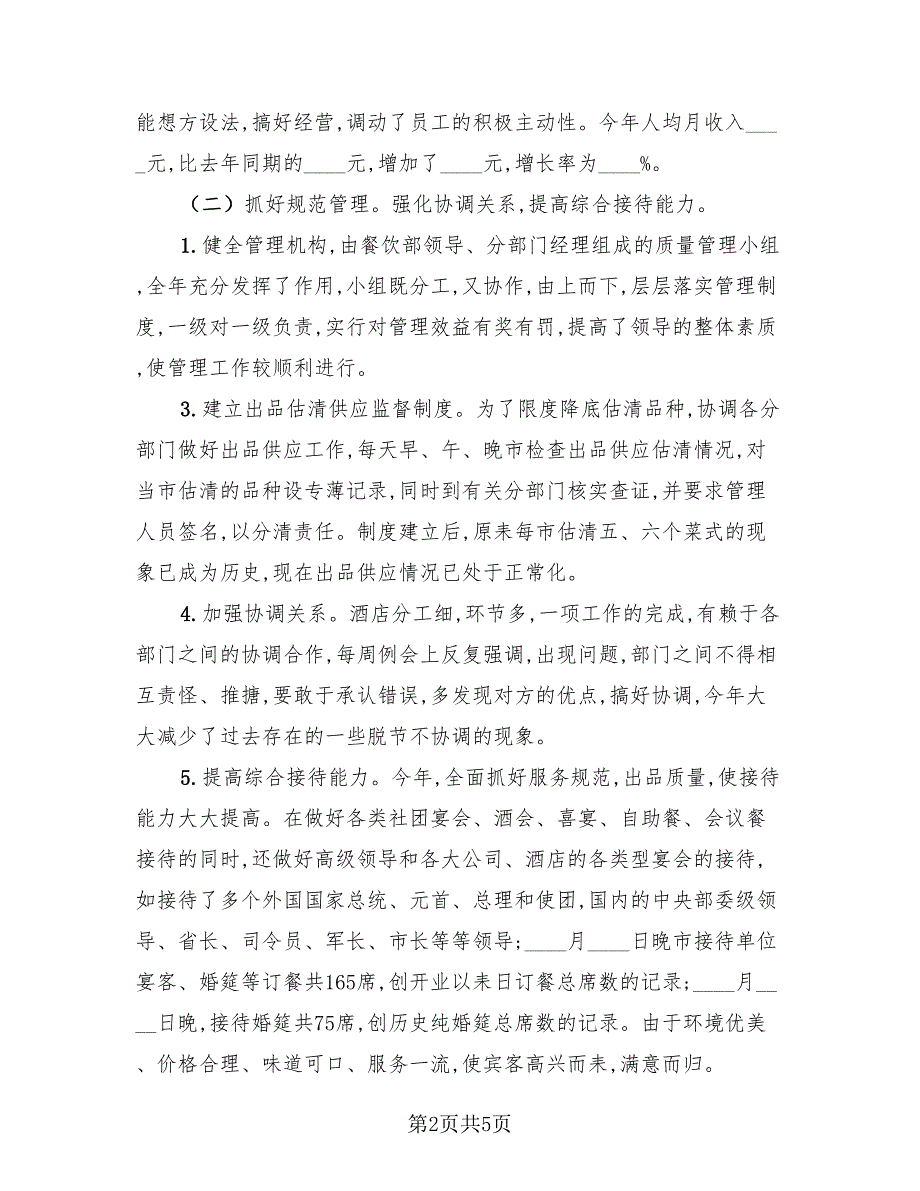 能想方设法,搞好经营,调动了员工的积极主动性。今年人均月收入___
_元,比去年同期的____元,增加了____元,增长率为____%。
（二）抓好规范管理。强化协调关系,提高综合接待能力。
1.健全管理机构,由餐饮部领导、分部门经理组成的质量管理小组
,全年充分发挥了作用,小组既分工,又协作,由上而下,层层落实管理制
度,一级对一级负责,实行对管理效益有奖有罚,提高了领导的整体素质
,使管理工作较顺利进行。
3.建立出品估清供应监督制度。为了限度降底估清品种,协调各分
部门做好出品供应工作,每天早、午、晚市检查出品供应估清情况,对
当市估清的品种设专薄记录,同时到有关分部门核实查证,并要求管理
人员签名,以分清责任。制度建立后,原来每市估清五、六个菜式的现
象已成为历史,现在出品供应情况已处于正常化。
4.加强协调关系。酒店分工细,环节多,一项工作的完成,有赖于各
部门之间的协调合作,每周例会上反复强调,出现问题,部门之间不得相
互责怪、推搪,要敢于承认错误,多发现对方的优点,搞好协调,今年大
大减少了过去存在的一些脱节不协调的现象。
5.提高综合接待能力。今年,全面抓好服务规范,出品质量,使接待
能力大大提高。在做好各类社团宴会、酒会、喜宴、自助餐、会议餐
接待的同时,还做好高级领导和各大公司、酒店的各类型宴会的接待,
如接待了多个外国国家总统、元首、总理和使团,国内的中央部委级领
导、省长、司令员、军长、市长等等领导;____月____日晚市接待单位
宴客、婚筵等订餐共165席,创开业以来日订餐总席数的记录;____月__
__日晚,接待婚筵共75席,创历史纯婚筵总席数的记录。由于环境优美
、价格合理、味道可口、服务一流,使宾客高兴而来,满意而归。
第2页共5页